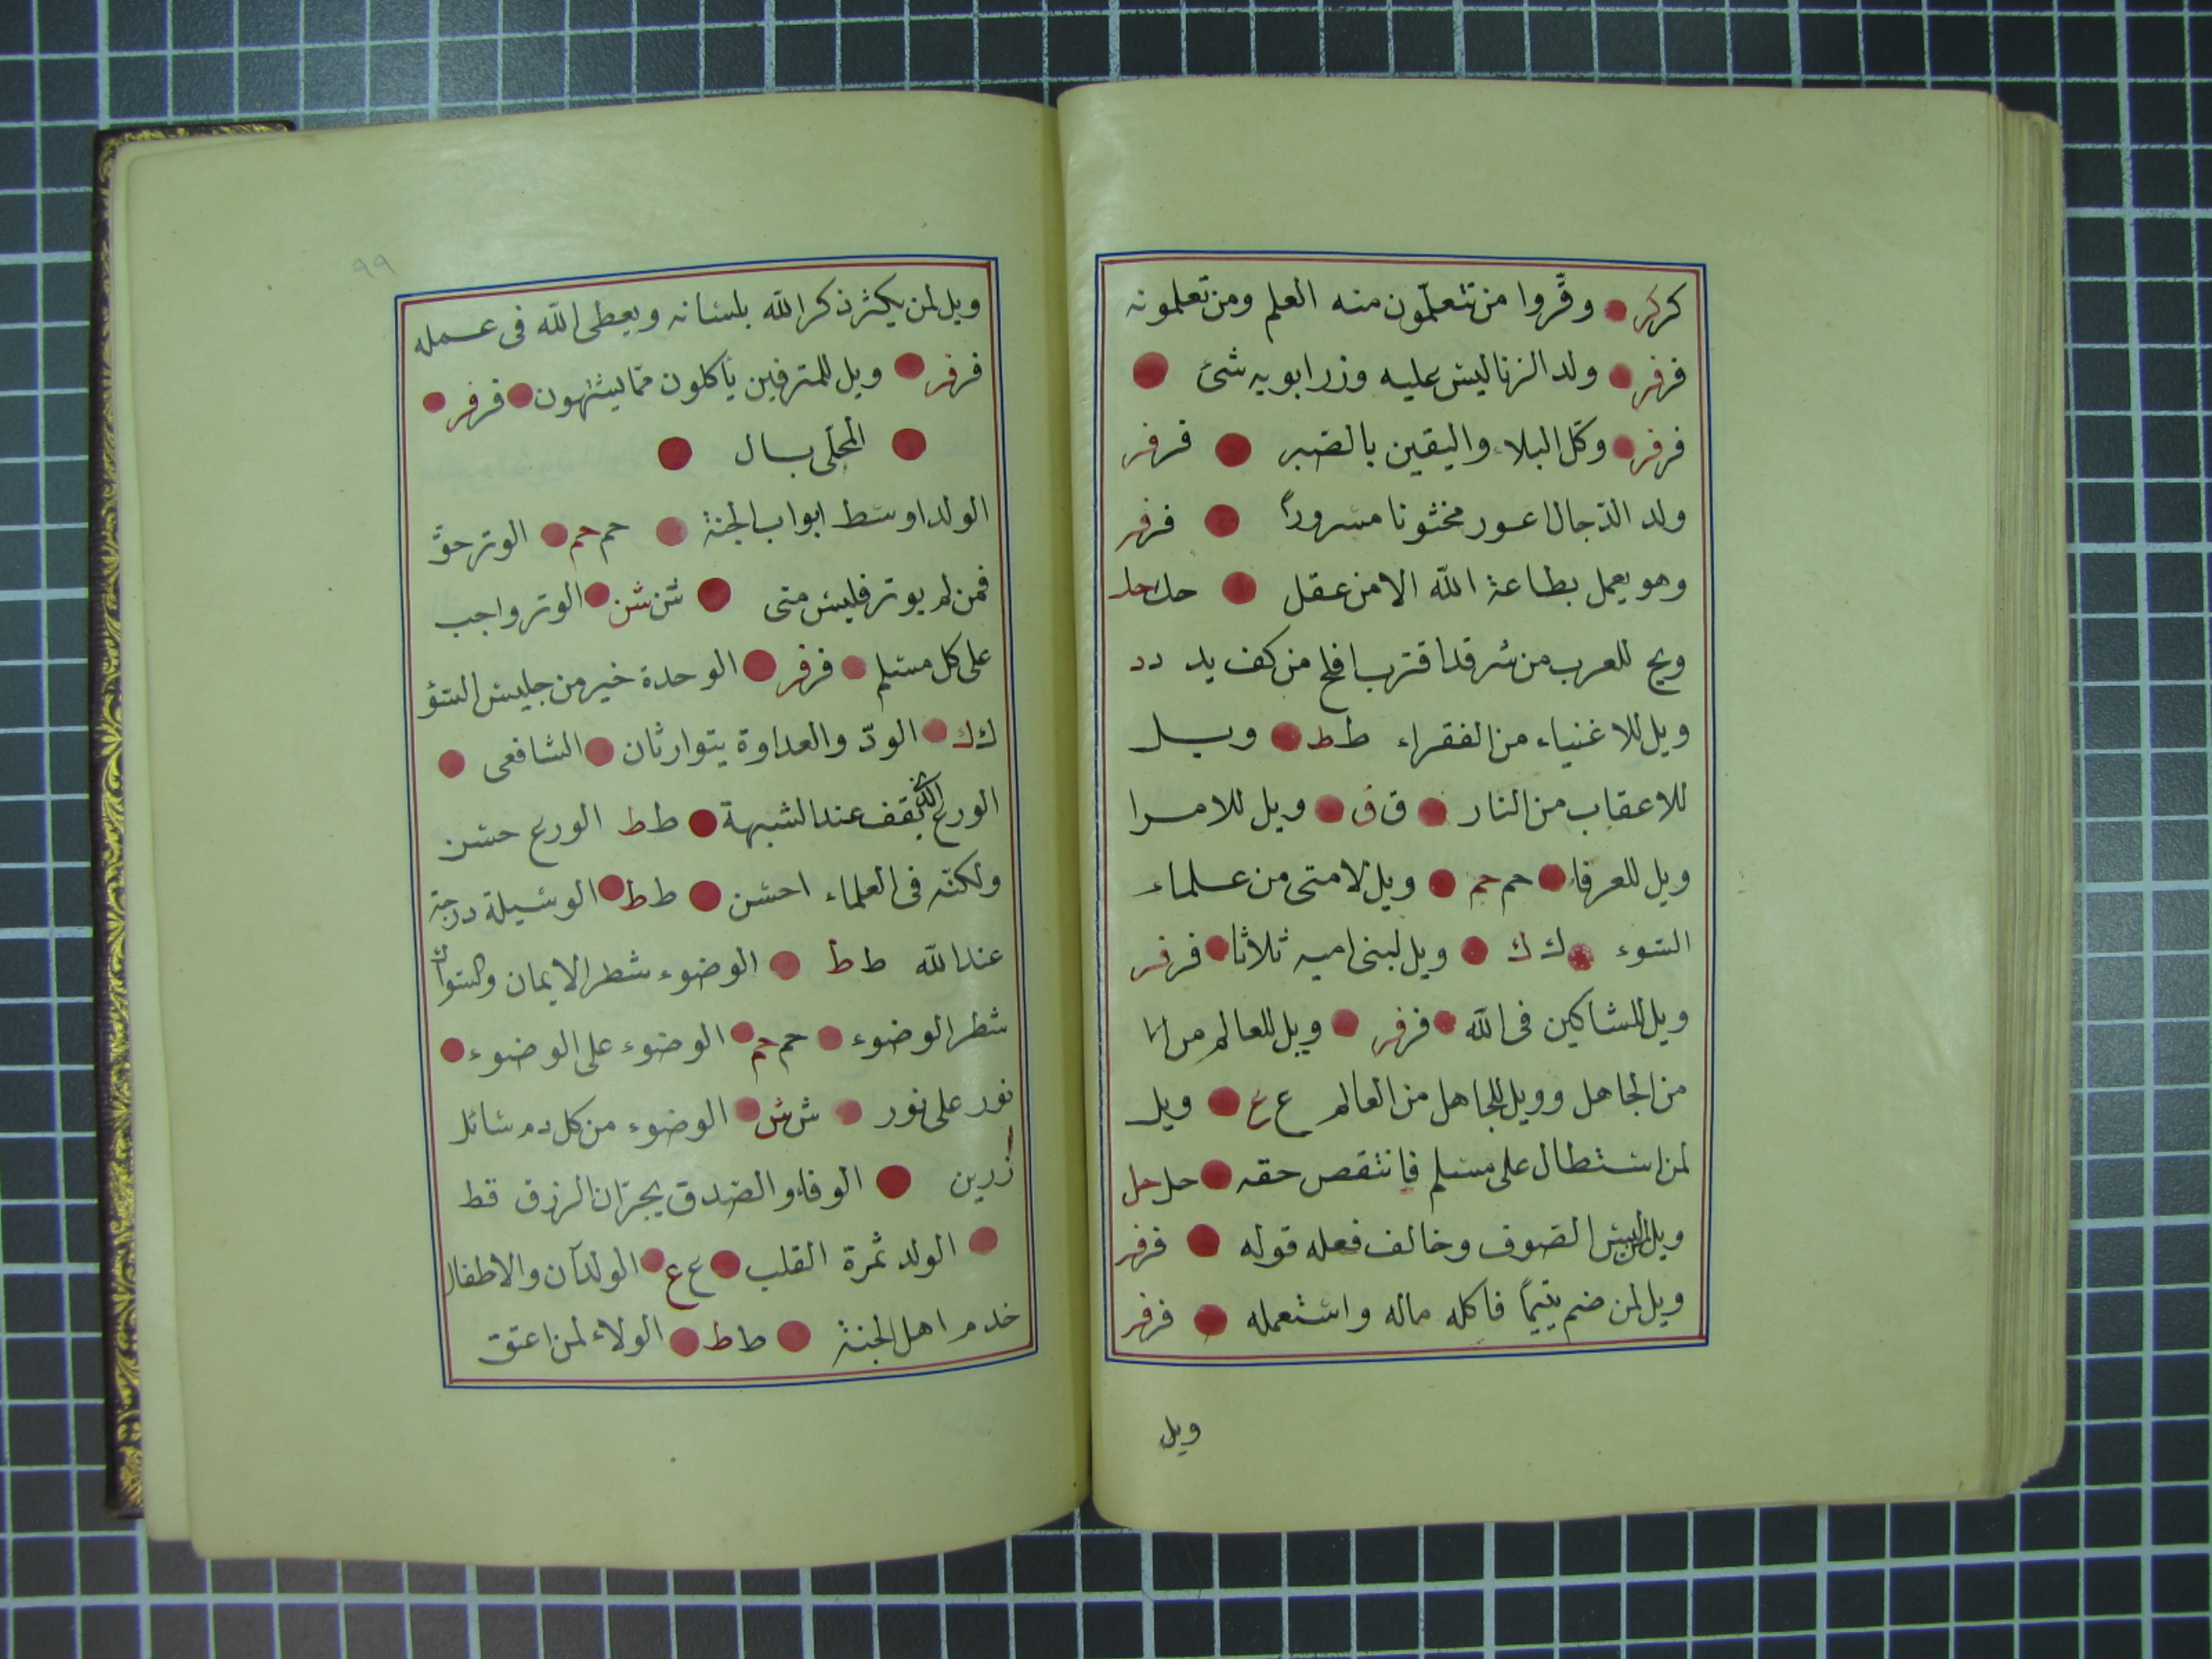 كر كر وقّروا من تتعلّمون منه العلم ومن تعلمونه
فر فر ولد الزنا ليس عليه وزر ابويه شئ
فر فر وكّل البلاء واليقين بالصبر فر فر
ولد الدّجال اعور مختونا مسروراً فر فر
وهو يعمل بطاعة الله الا من عقل حك حك
ويح للعرب من شر قد اقترب افلح من كف يد د د
ويل للاغنياء من الفقراء ط ط ويل
للاعقاب من النار ق ق ويل للامرا
ويل للعرفاء حم حم ويل لامتى من علماء
السوء ك ك ويل لبنى اميه ثلاثا فر فر
ويل للشاكين فى الله فر فر ويل للعالم
من الجاهل وويل للجاهل من العالم ع ع ويل
لمن استطال على مسلم فانتقص حقه حل حل
ويل لمن لبس الصوف وخالف فعله قوله فر فر
ويل لمن ضم يتيماً فاكله ماله واستعمله فر فر
ويل
٩٩
ويل لمن يكثر ذكر الله بلسانه ويعطى الله فى عمله
فر فر ويل للمترفين يأكلون ممّا يشتهون فر فر
المحلّى بال
الولد اوسط ابواب الجنة حم حم الوتر حقّ
فمن لم يوتر فليس منى شن شن الوتر واجب
على كل مسلم فر فر الوحدة خير من جليس السّؤ
ك ك الودّ والعداوة يتوارثان الشافعى
الورع الذى يقف عند الشبهة ط ط الورع حسن
ولكنّه فى العلماء احسن ط ط الوسيلة درجة
عند الله ط ط الوضوء شطر الايمان والسواك
شطر الوضوء حم حم الوضوء على الوضوء
نور على نور ش ش الوضوء من كل دم سائل
زرين الوفاء والصدق يجرّان الرزق قط
الولد ثمرة القلب ع ع الولدآن والاطفال
خدم اهل الجنة ط ط الولاء لمن اعتق